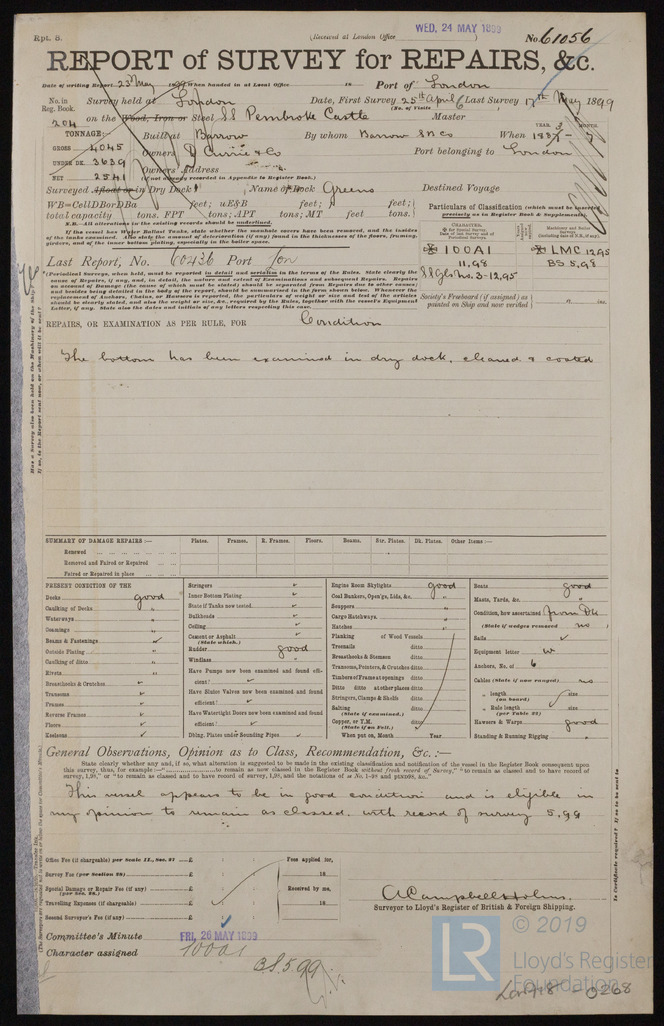 Rpt. 8.
(Received at London Office WED, 24 MAY 1899 )
No. 61056
REPORT of SURVEY for REPAIRS, &c.
Date of writing Report 23 May 1899 when handed in at Local Office 18 Port of London
No. in Reg. Book. 204
Survey held at London Date, First Survey 25th April Last Survey 17th May 1899
(No. of Visits 6 )
on the Wood, Iron or Steel SS Pembroke Castle Master
TONNAGE:
GROSS 4045
UNDER DK. 3639
NET 2541
Built at Barrow By whom Barrow SB Co When 1883
YEAR. MONTH.
Owners D Currie & Co Port belonging to London
Owners' Address
(If not already recorded in Appendix to Register Book.)
Surveyed Afloat or in Dry Dock Name of Dock Greens Destined Voyage
WB=CellDBorDBa feet; uE&B feet; feet;
total capacity tons. FPT tons; APT tons; MT feet tons.
N.B.—All alterations in the existing records should be underlined.
If the vessel has Water Ballast Tanks, state whether the manhole covers have been removed, and the insides of the tanks examined. Also state the amount of deterioration (if any) found in the thicknesses of the floors, framing, girders, and of the inner bottom plating, especially in the boiler space.
Particulars of Classification (which must be inserted precisely as in Register Book & Supplement).
100A1
11,98
SSGls No. 3-12,95
LMC 12,95
BS 5,98
Last Report, No. 60436 Port Lon
(Periodical Surveys, when held, must be reported in detail and seriatim in the terms of the Rules. State clearly the cause of Repairs, if any, and, in detail, the nature and extent of Examinations and subsequent Repairs. Repairs on account of Damage (the cause of which must be stated) should be separated from Repairs due to other causes; and besides being detailed in the body of the report, should be summarised in the form shown below.
Society's Freeboard (if assigned) as painted on Ship and now verified ft. ins.
REPAIRS, OR EXAMINATION AS PER RULE, FOR Condition
The bottom has been examined in dry dock, cleaned & coated
SUMMARY OF DAMAGE REPAIRS :— Plates. Frames. R. Frames. Floors. Beams. Str. Plates. Dk. Plates. Other Items:—
Renewed
Removed and Faired or Repaired
Faired or Repaired in place
PRESENT CONDITION OF THE
Decks good
Caulking of Decks "
Waterways "
Coamings "
Beams & Fastenings ✓
Outside Plating "
Caulking of ditto "
Rivets "
Breasthooks & Crutches ✓
Transoms ✓
Frames ✓
Reverse Frames ✓
Floors ✓
Keelsons ✓
Stringers ✓
Inner Bottom Plating ✓
State if Tanks now tested ✓
Bulkheads ✓
Ceiling ✓
Cement or Asphalt ✓
(State which.)
Rudder good
Windlass "
Have Pumps now been examined and found efficient? ✓
Have Sluice Valves now been examined and found efficient? ✓
Have Watertight Doors now been examined and found efficient? ✓
Dblng. Plates under Sounding Pipes ✓
Engine Room Skylights good
Coal Bunkers, Open'gs, Lids, &c. "
Scuppers "
Cargo Hatchways "
Hatches "
Planking of Wood Vessels
Treenails ditto
Breasthooks & Stemson ditto
Transoms, Pointers, & Crutches ditto
Timbers of Frame at openings ditto
Ditto ditto at other places ditto
Stringers, Clamps & Shelfs ditto
Salting ditto
(State if examined.)
Copper, or Y.M. ditto
(State if on Felt.)
When put on, Month Year
Boats good
Masts, Yards, &c. "
Condition, how ascertained from Dk
(State if wedges removed no )
Sails ✓
Equipment letter W
Anchors, No. of 6
Cables (State if now ranged) no
" length (on board) size
" Rule length (per Table 22) size
Hawsers & Warps good
Standing & Running Rigging "
General Observations, Opinion as to Class, Recommendation, &c. :—
State clearly whether any and, if so, what alteration is suggested to be made in the existing classification and notification of the vessel in the Register Book consequent upon
this survey, thus, for example :—" to remain as now classed in the Register Book without fresh record of Survey," "to remain as classed and to have record of
survey, 1,98," or "to remain as classed and to have record of survey, 1,98, and the notations of ss No. 1-98 and ptND98, &c."
This vessel appears to be in good condition and is eligible in
my opinion to remain as classed. with record of survey 5,99
Office Fee (if chargeable) per Scale II., Sec. 27 £
Survey Fee (per Section 28) £
Special Damage or Repair Fee (if any) £
(per Sec. 28.)
Travelling Expenses (if chargeable) £
Second Surveyor's Fee (if any) £
Fees applied for, 18
Received by me, 18
A Campbell Holms.
Surveyor to Lloyd's Register of British & Foreign Shipping.
Committee's Minute FRI, 26 MAY 1899
Character assigned 100A1
BS 5.99
© 2019
LR
Lloyd's Register
Foundation
Lon718-0268